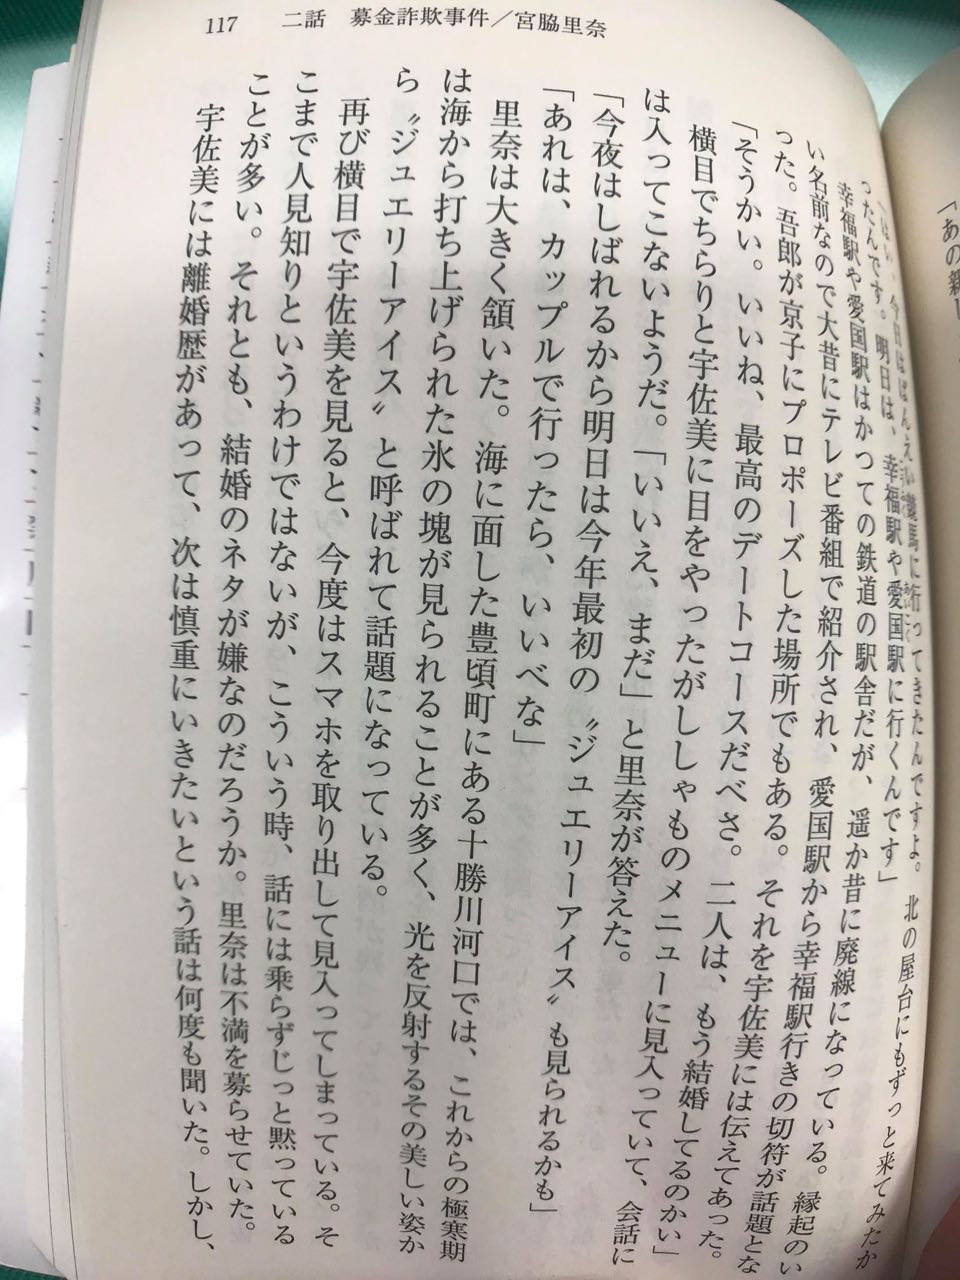 117　二話　募金詐欺事件／宮脇里奈
「あの親
「はい、今日はばんえい競馬に行ってきたんですよ。北の屋台にもずっと来てみたか
ったんです。明日は、幸福駅や愛国駅に行くんです」
幸福駅や愛国駅はかつての鉄道の駅舎だが、遥か昔に廃線になっている。縁起のい
い名前なので大昔にテレビ番組で紹介され、愛国駅から幸福駅行きの切符が話題とな
った。吾郎が京子にプロポーズした場所でもある。それを宇佐美には伝えてあった。
「そうかい。いいね、最高のデートコースだべさ。二人は、もう結婚してるのかい」
横目でちらりと宇佐美に目をやったがししゃものメニューに見入っていて、会話に
は入ってこないようだ。「いいえ、まだ」と里奈が答えた。
「今夜はしばれるから明日は今年最初の〝ジュエリーアイス〟も見られるかも」
「あれは、カップルで行ったら、いいべな」
里奈は大きく頷いた。海に面した豊頃町にある十勝川河口では、これからの極寒期
は海から打ち上げられた氷の塊が見られることが多く、光を反射するその美しい姿か
ら〝ジュエリーアイス〟と呼ばれて話題になっている。
再び横目で宇佐美を見ると、今度はスマホを取り出して見入ってしまっている。そ
こまで人見知りというわけではないが、こういう時、話には乗らずじっと黙っている
ことが多い。それとも、結婚のネタが嫌なのだろうか。里奈は不満を募らせていた。
宇佐美には離婚歴があって、次は慎重にいきたいという話は何度も聞いた。しかし、